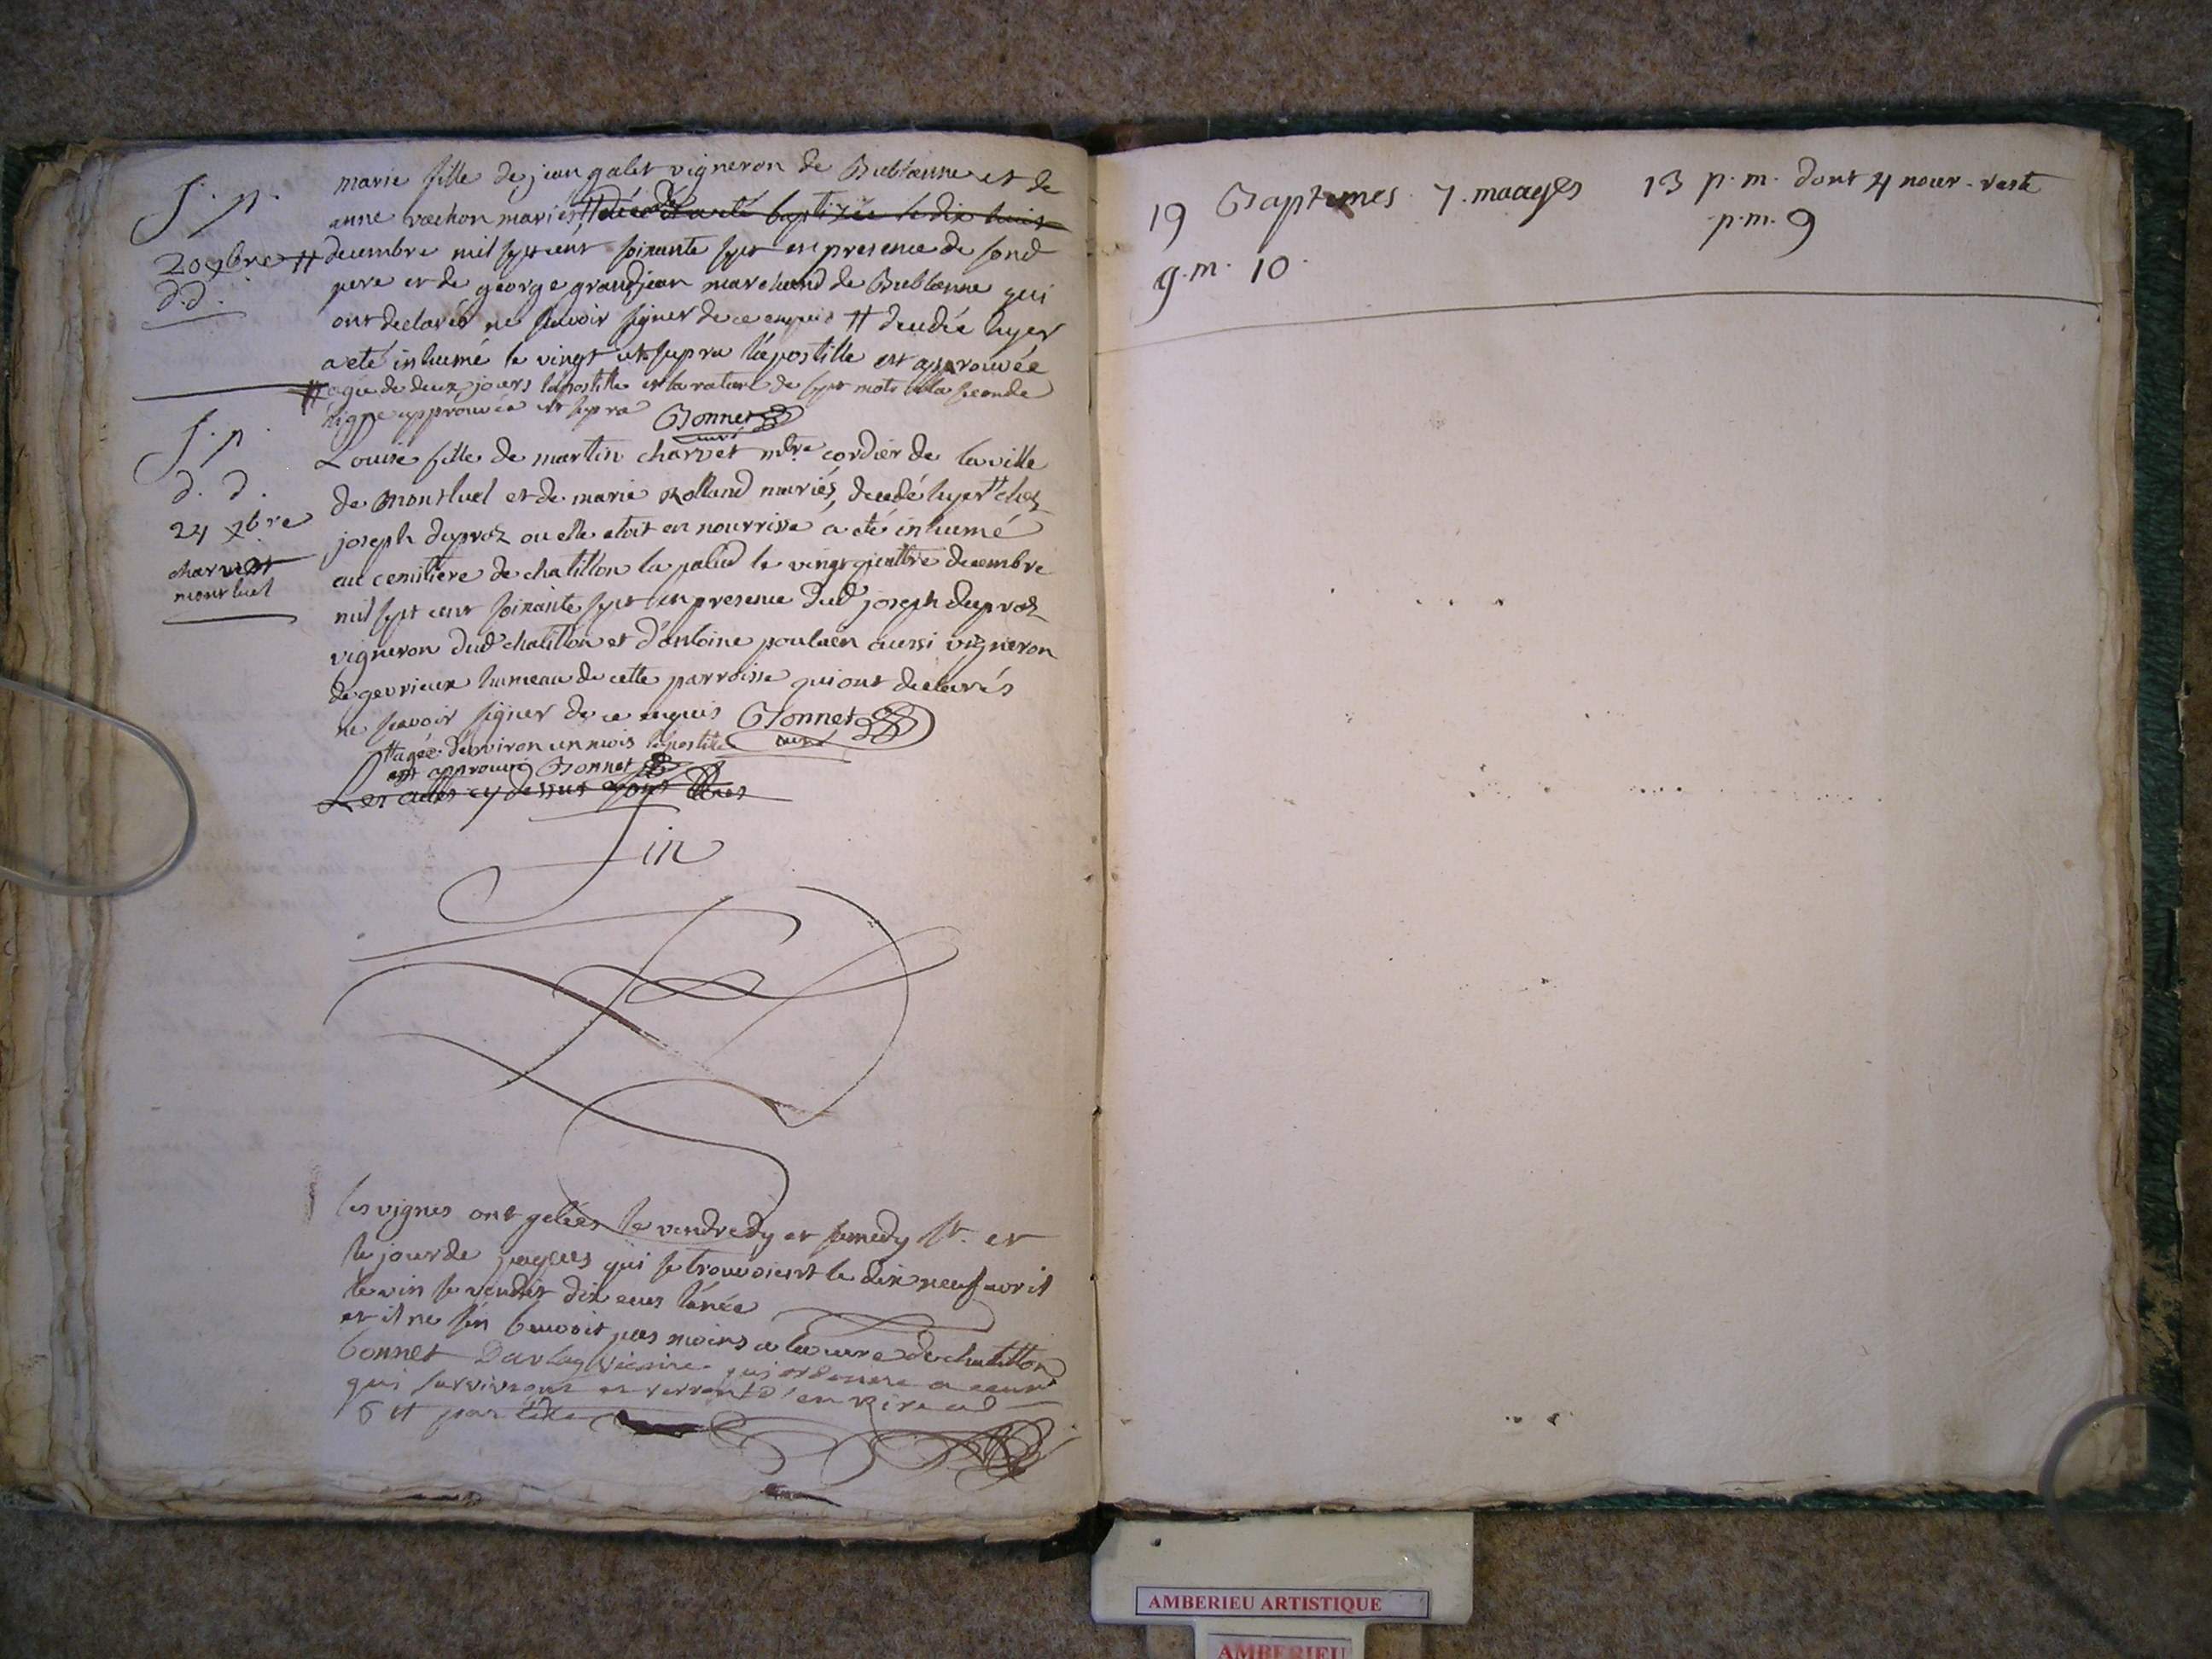 S. p.
20 xbre
d. d.
marie fille de jean galet vigneron de Bublanne et de
anne vachon mariés, # décédé a eté baptizée le dix huit
# decembre mil sept cent soixante sept en presence de sond
pere et de george grandjean marchand de Bublanne qui
ont declarés ne scavoir signer de ce enquis # decedée hyer
a eté inhumé le vingt ut supra l'apostille est approuvée
# agée de deux jours l'apostille et la rature de sept mots a la seconde
ligne approuvée ut supra Bonnet
curé
S. p.
d. d.
24 xbre
charvet
montluel
Louise fille de martin charvet mtre cordier de la ville
de montluel et de marie Rolland mariés, decedé hyer # chez
joseph duproz ou elle etoit en nourrisse a eté inhumé
au cemitiere de chatillon la palud le vingt quattre decembre
mil sept cent soixante sept en presence dud joseph duproz
vigneron dud chatillon et d'antoine poulain aussi vigneron
de gevrieux hameau de cette parroisse qui ont declarés
ne scavoir signer de ce enquis Bonnet
curé
# agée d'environ un mois l'apostille
est approuvée Bonnet
Les actes cy dessus sont
Fin
les vignes ont gelées le vendredy et samedy st. et
le jour de paques qui se trouvoient le dix neuf avril
le vin se vendit dix ecus l'anée
et il ne s'en beuvoit pas moins a la cure de chatillon
bonnet vicaire qui ordonne a ceux
qui survivront et verront d'en Rire
19 Baptemes 7. maages 13 p. m. dont 4 nour. reste
p. m. 9
g. m. 10.
AMBERIEU ARTISTIQUE
AMBERIEU